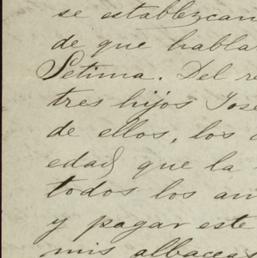 se establezcan
de que habla
Setima. Del
tres hijos José
de ellos, los
edad, que la
todos los
y pagar este
mis albaceas